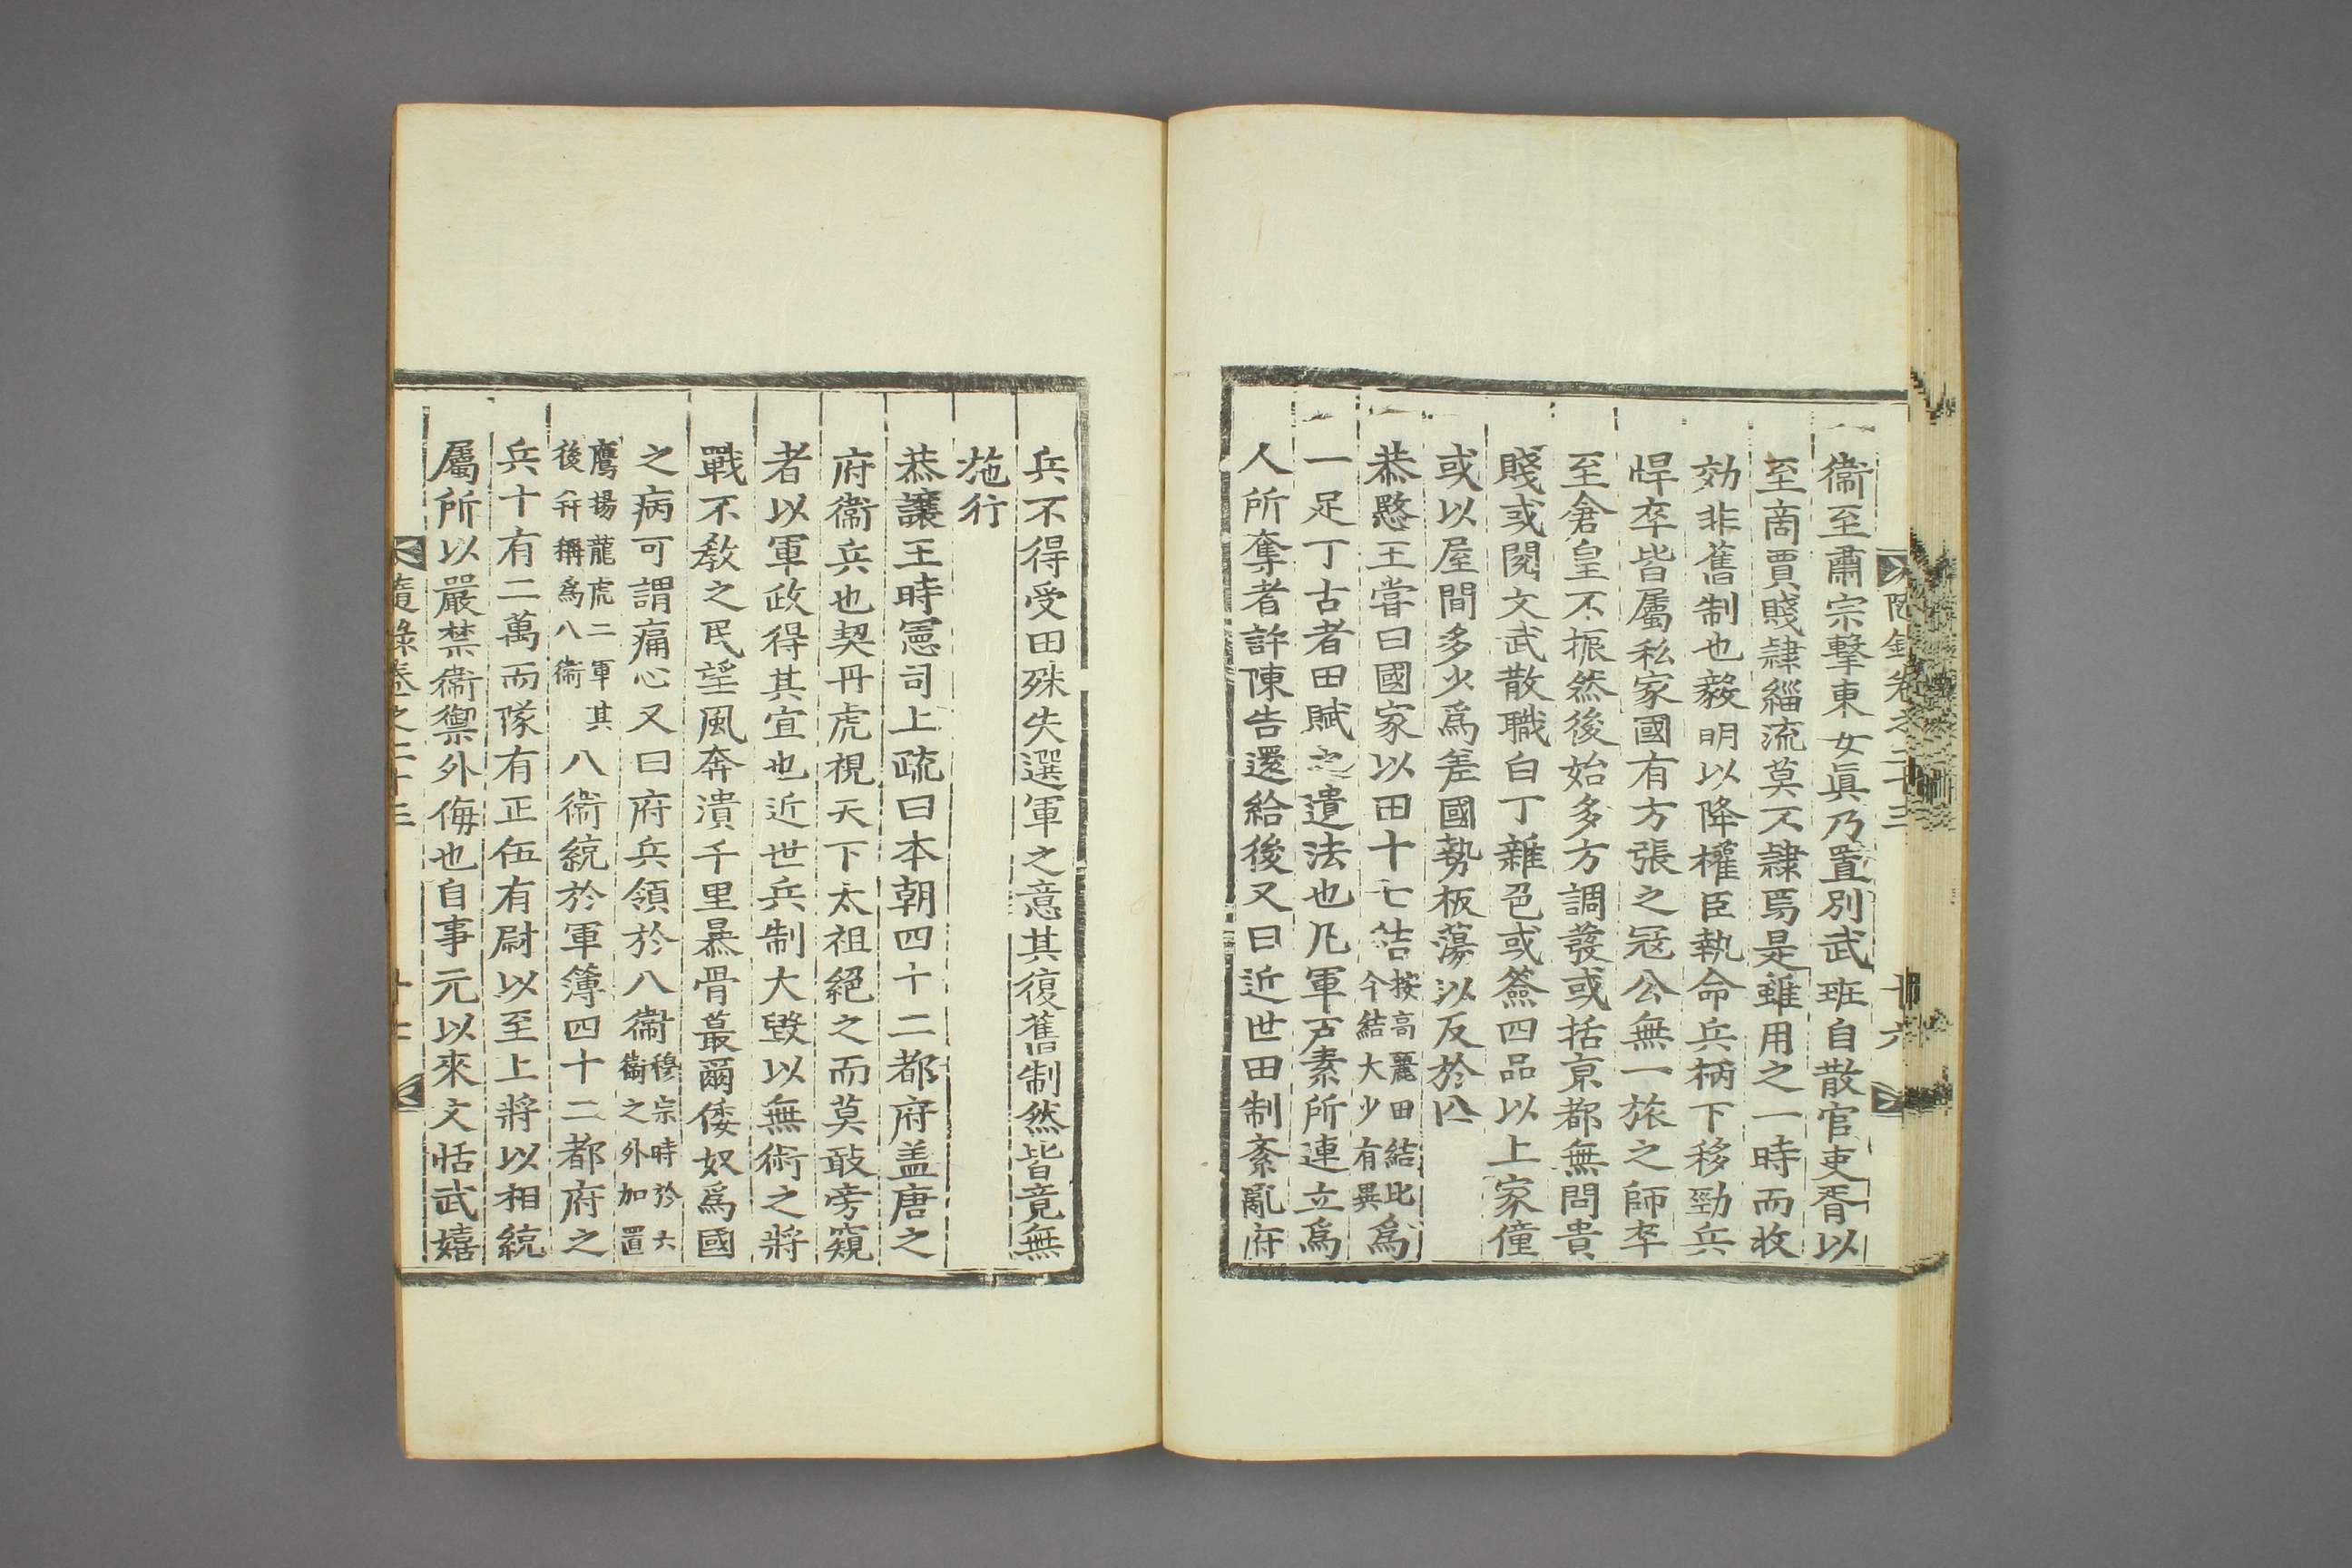 隨錄卷之二十三 十六
衞至肅宗擊東女眞乃置別武班自散官吏胥以
至商賈賤隷緇流莫不隷焉是雖用之一時而收
効非舊制也毅明以降權臣執命兵柄下移勁兵
悍卒皆屬私家國有方張之寇公無一旅之師卒
至倉皇不振然後始多方調發或括京都無問貴
賤或閱文武散職白丁雜色或簽四品以上家僮
或以屋間多少爲差國勢板蕩以及於亡
恭愍王嘗曰國家以田十七結按高麗田結比今結大少有異爲
一足丁古者田賦之遺法也凡軍戶素所連立爲
人所奪者許陳告還給後又曰近世田制紊亂府
兵不得受田殊失選軍之意其復舊制然皆竟無
施行
恭讓王時憲司上疏曰本朝四十二都府盖唐之
府衞兵也契丹虎視天下太祖絕之而莫敢旁窺
者以軍政得其宜也近世兵制大毁以無術之將
戰不敎之民望風奔潰千里暴骨蕞爾倭奴爲國
之病可謂痛心又曰府兵領於八衞穆宗時於六衞之外加置
鷹揚龍虎二軍其後幷稱爲八衞八衞統於軍簿四十二都府之
兵十有二萬而隊有正伍有尉以至上將以相統
屬所以嚴禁衞禦外侮也自事元以來文恬武嬉
隨錄卷之二十三 十七